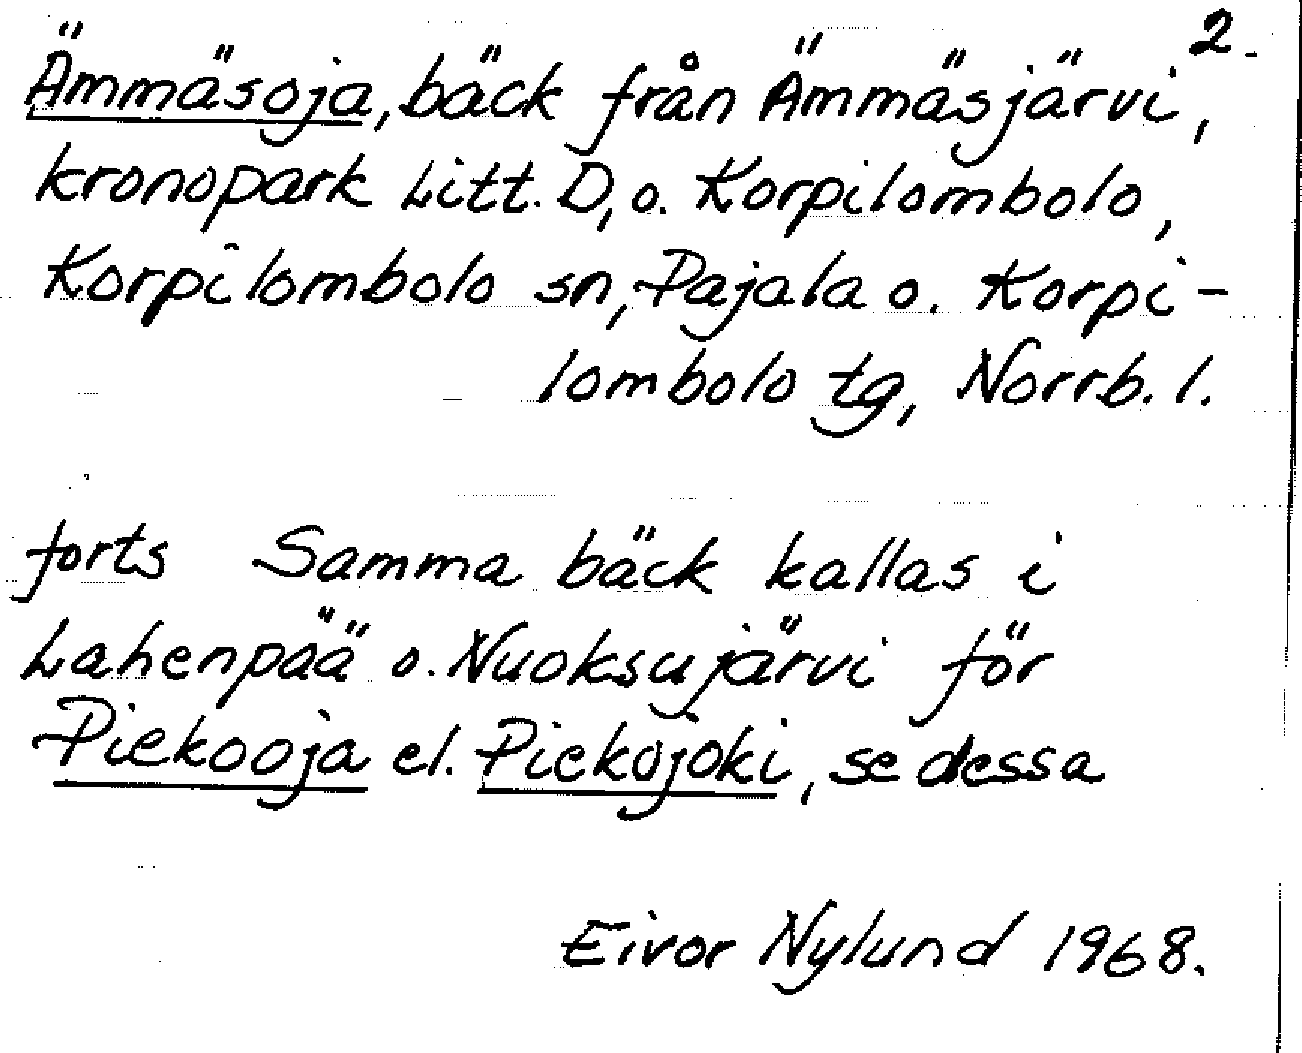 2.
Ämmäsoja, bäck från Ämmäsjärvi,
kronopark Litt. D, o. Korpilombolo,
Korpilombolo sn, Pajala o. Korpi-
lombolo tg, Norrb. l.
forts Samma bäck kallas i
Lahenpää o. Nuoksujärvi för
Piekooja el. Piekojoki, se dessa
Eivor Nylund 1968.